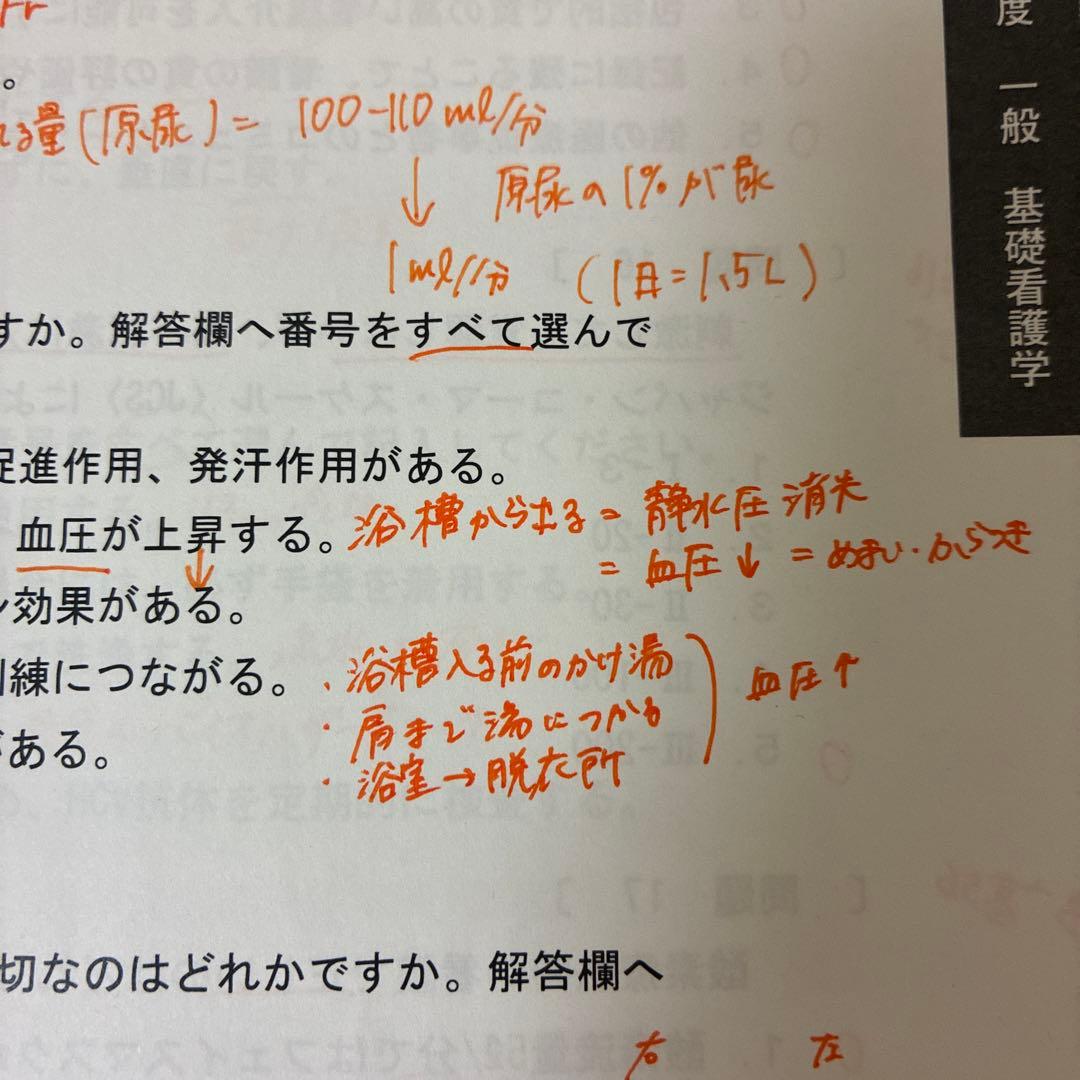 度 一般 基礎看護学
。
る量(原尿) = 100-110 ml/分
↓ 原尿の1%が尿
1ml/分 (1日=1.5L)
すか。解答欄へ番号をすべて選んで
促進作用、発汗作用がある。
血圧が上昇する。浴槽から出る = 静水圧消失
↓ = 血圧↓ = めまい・ふらつき
効果がある。
練につながる。・浴槽入る前のかけ湯
・肩まで湯につかる
がある。・浴室→脱衣所
血圧↑
切なのはどれかですか。解答欄へ
右 左